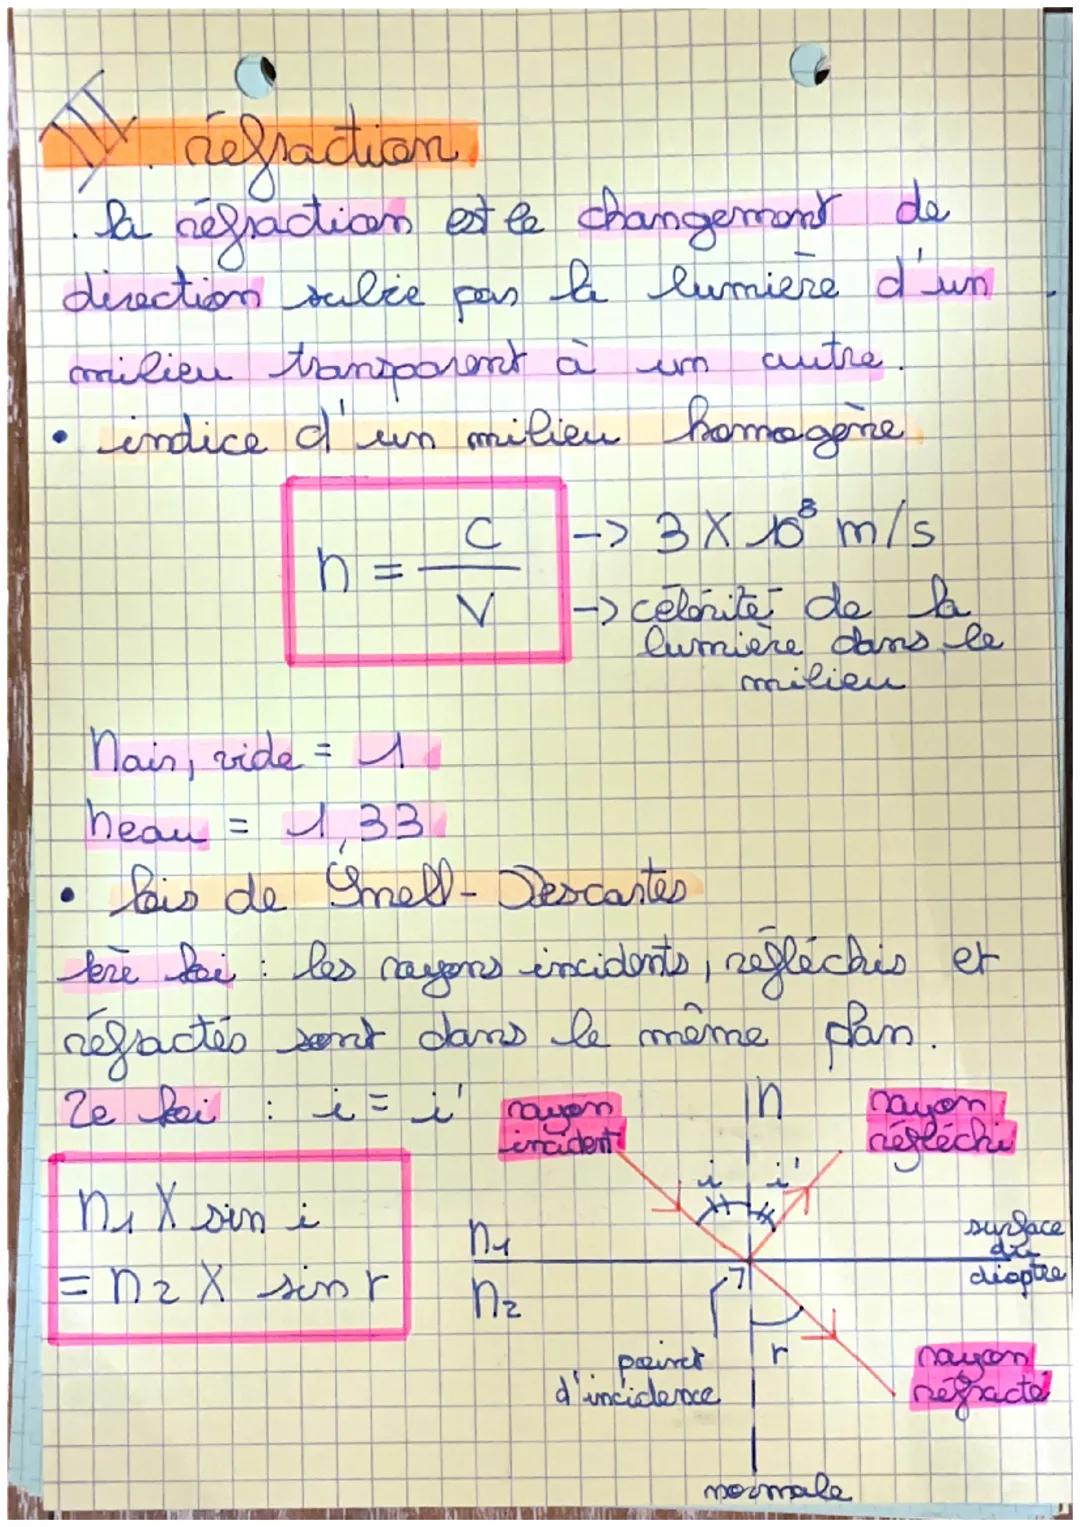 III. réfraction
. la réfraction est le changement de
direction subie par la lumière d'un
milieu transparent à un autre.
• indice d'un milieu homogène
n = C / V
-> 3 X 10⁸ m/s
-> célérité de la
lumière dans le
milieu
nair, vide = 1
neau = 1,33
• lois de Snell-Descartes
1ère loi : les rayons incidents, réfléchis et
réfractés sont dans le même plan.
2e loi : i = i'
n1 X sin i
= n2 X sin r
rayon
incident
n
rayon
réfléchi
i
i'
n1
surface
du
dioptre
n2
point
d'incidence
r
rayon
réfracté
normale